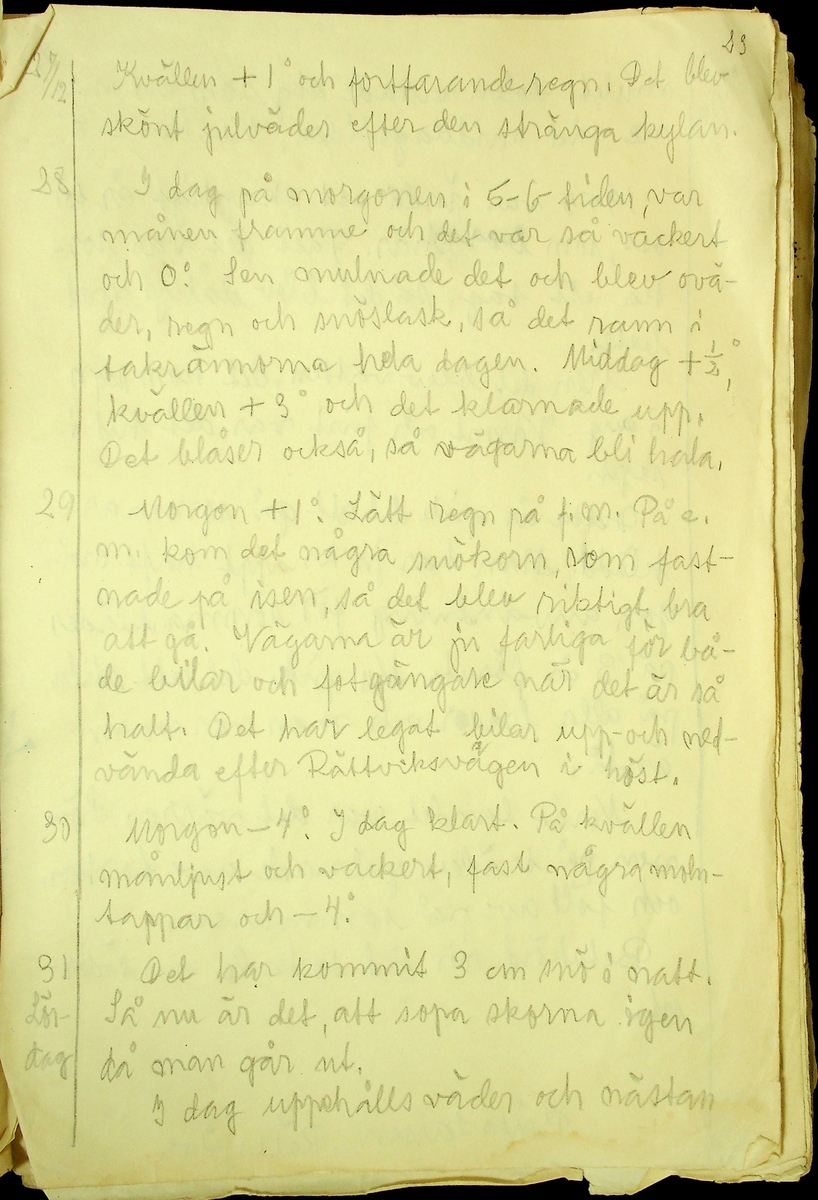 23
27/12 Kvällen +1° och fortfarande regn. Det blev
skönt julväder efter den stränga kylan.
28 I dag på morgonen i 5-6 tiden, var
månen framme och det var så vackert
och 0°. Sen mulnade det och blev ovä-
der, regn och snöslask, så det rann i
takrännorna hela dagen. Middag +½°,
kvällen +3° och det klarnade upp.
Det blåser också, så vägarna bli hala.
29 Morgon +1°. Lätt regn på f.m. På e.
m. kom det några snökorn, som fast-
nade på isen, så det blev riktigt bra
att gå. Vägarna är ju farliga för bå-
de bilar och fotgängare när det är så
halt. Det har legat bilar upp-och ned-
vända efter Rättviksvägen i höst.
30 Morgon -4°. I dag klart. På kvällen
månljust och vackert, fast några moln-
tappar och -4°.
31 Det har kommit 3 cm snö i natt.
Lör- Så nu är det, att sopa skorna igen
dag då man går ut.
I dag uppehålls väder och nästan